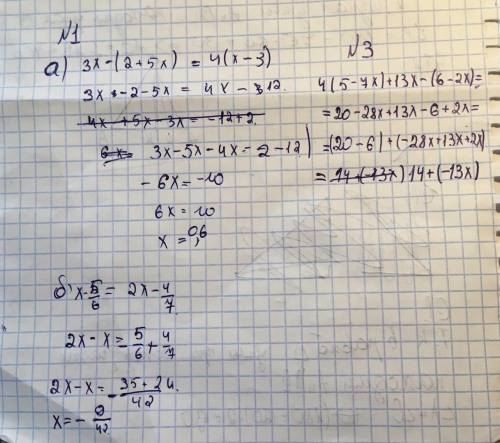 №1
а) 3x-(2+5x) = 4(x-3)
3x-2-5x = 4x-12.
4x+5x-3x=-12+2
6x= 3x-5x-4x=2-12
-6x=-10
6x=10
x=0,6
б) x-5/6= 2x-4/7
2x-x=-5/6+4/7
2x-x=-35+24/42
x=-9/42
№3
4(5-7x)+13x-(6-2x)=
=20-28x+13x-6+2x=
=(20-6)+(-28x+13x+2x)
=14+(-13x) 14+(-13x)